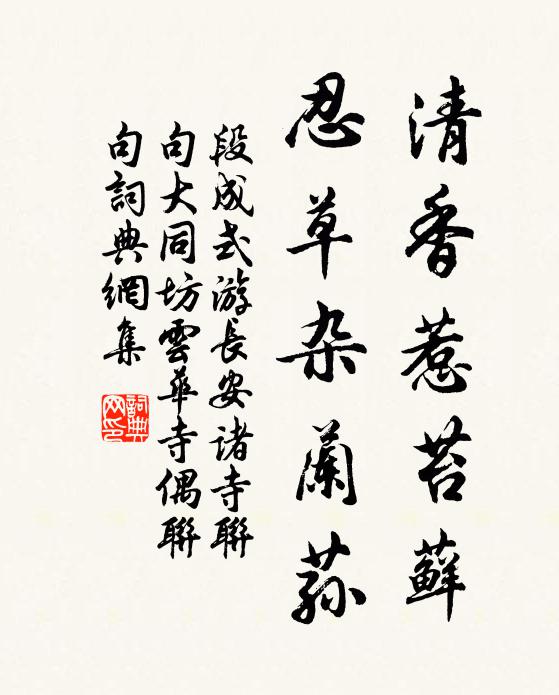 清香惹苔蘚
忍草杂蘭蓀
段成式游長安诸寺聯
句大同坊雲華寺偶聯
句詞典網集
詞典
网印